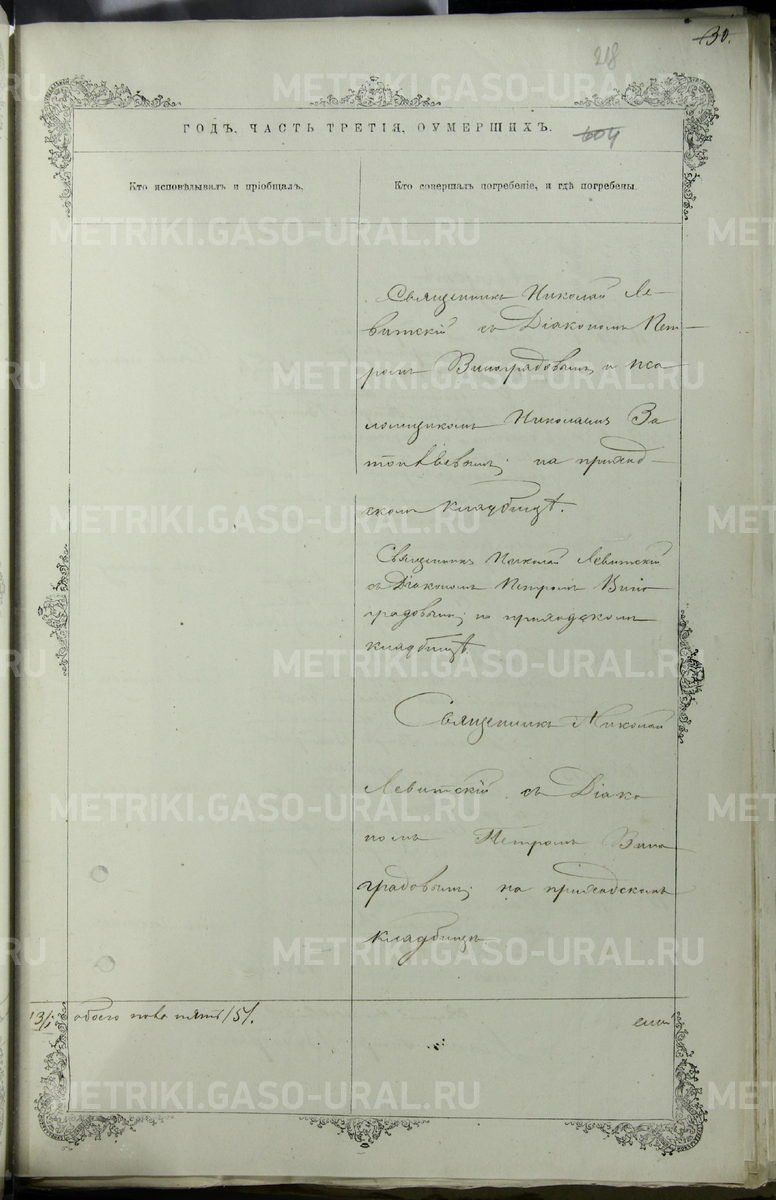 30.
218
ГОДЪ, ЧАСТЬ ТРЕТІЯ, О УМЕРШИХЪ.
604
Кто исповѣдывалъ и пріобщалъ.
Кто совершалъ погребеніе, и гдѣ погребены.
Священникъ Николай Ле-
витскій съ Діакономъ Пет-
ромъ Виноградовымъ и пса
ломщикомъ Николаемъ
на приход-
скомъ кладбищѣ.
Священникъ Николай Левитскій
съ Діакономъ Петромъ Вино
градовымъ; на приходскомъ
кладбищѣ.
Священникъ Николай
Левитскій съ Діако
номъ Петромъ Вино
градовымъ; на приходскомъ
кладбищѣ
обоего пола пять /5/.
METRIKI.GASO-URAL.RU